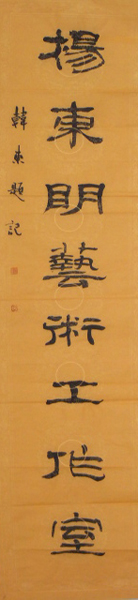 揚東明藝術工作室
韓東題記